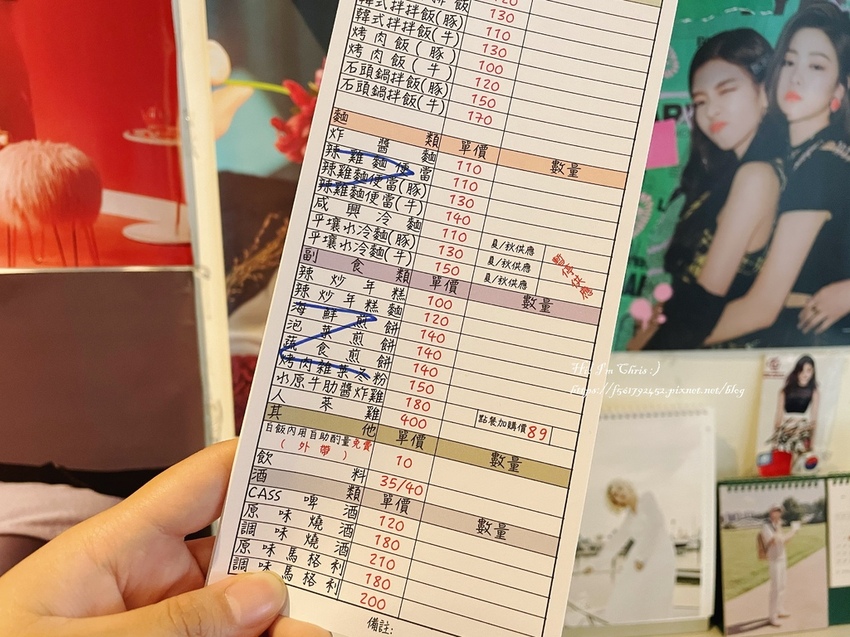 120
130
韓式拌拌飯(豚) 110
韓式拌拌飯(牛) 130
烤肉飯(豚) 100
烤肉飯(牛) 120
石頭鍋拌飯(豚) 150
石頭鍋拌飯(牛) 170
麵類 單價 數量
炸醬麵 110
辣雞麵便當 110
辣雞麵便當(豚) 130
辣雞麵便當(牛) 140
咸興冷麵 110 夏/秋供應
平壤水冷麵(豚) 130 夏/秋供應
平壤水冷麵(牛) 150 夏/秋供應
暫停供應
副食類 單價 數量
辣炒年糕 100
辣炒年糕麵 120
海鮮煎餅 140
泡菜煎餅 140
蔬食煎餅 140
烤肉雜菜冬粉 150
水原牛肋醬炸雞 180
人菜雞 400 點餐加購價89
其他 單價 數量
白飯內用自助酌量免費
(外帶) 10
飲料 35/40
酒類 單價 數量
CASS啤酒 120
原味燒酒 180
調味燒酒 210
原味馬格利 180
調味馬格利 200
備註:
Hi I'm Chris :)